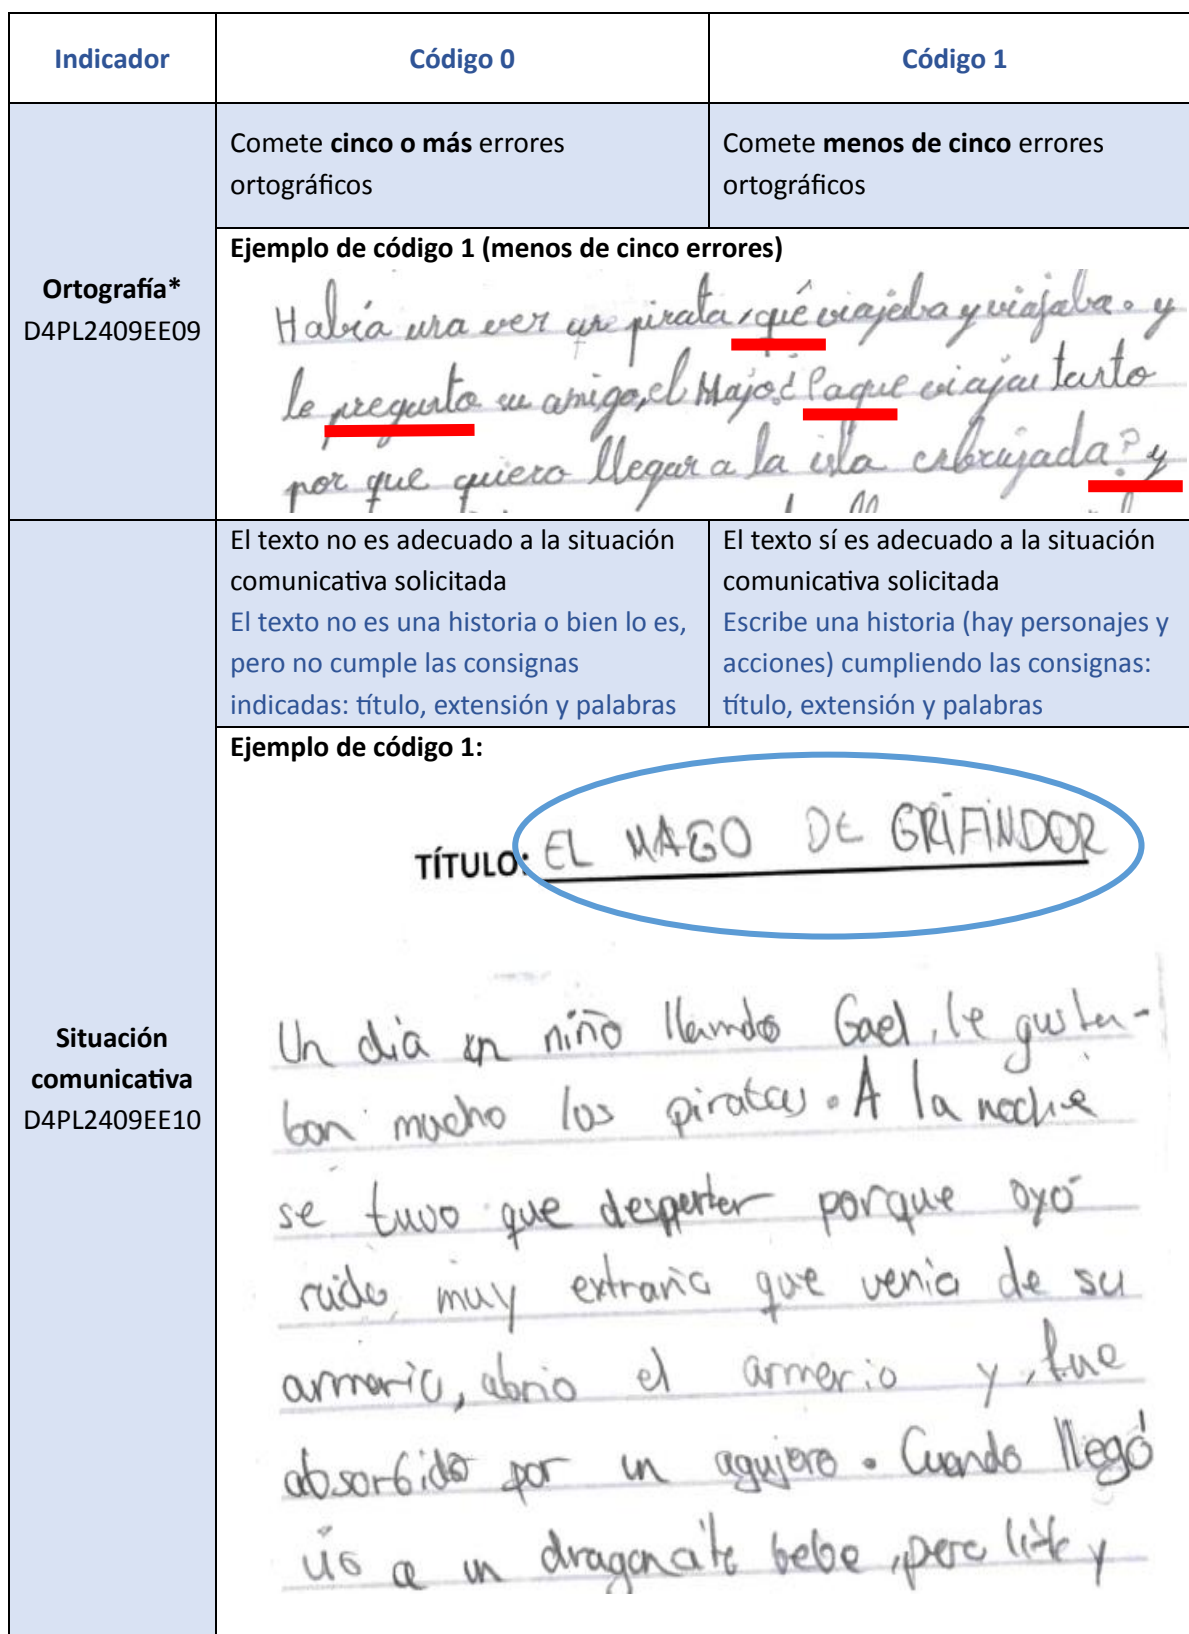 Indicador
Código 0
Código 1
Ortografía*
D4PL2409EE09
Comete cinco o más errores
ortográficos
Comete menos de cinco errores
ortográficos
Ejemplo de código 1 (menos de cinco errores)
Había una vez un pirata, qué viajaba y viajaba. y
le pregunto su amigo, el Majo: ¿Paque viajas tanto
por que quiero llegar a la isla enbrujada? y
Situación
comunicativa
D4PL2409EE10
El texto no es adecuado a la situación
comunicativa solicitada
El texto no es una historia o bien lo es,
pero no cumple las consignas
indicadas: título, extensión y palabras
El texto sí es adecuado a la situación
comunicativa solicitada
Escribe una historia (hay personajes y
acciones) cumpliendo las consignas:
título, extensión y palabras
Ejemplo de código 1:
TÍTULO: EL MAGO DE GRIFINDOR
Un dia un niño llamdo Gael, le gusta-
ban mucho los piratas. A la noche
se tuvo que despertar porque oyó
ruido muy extraño que venia de su
armario, abrio el armario y, fue
absorbido por un agujero. Cuando llegó
vio a un dragoncito bebe, pero